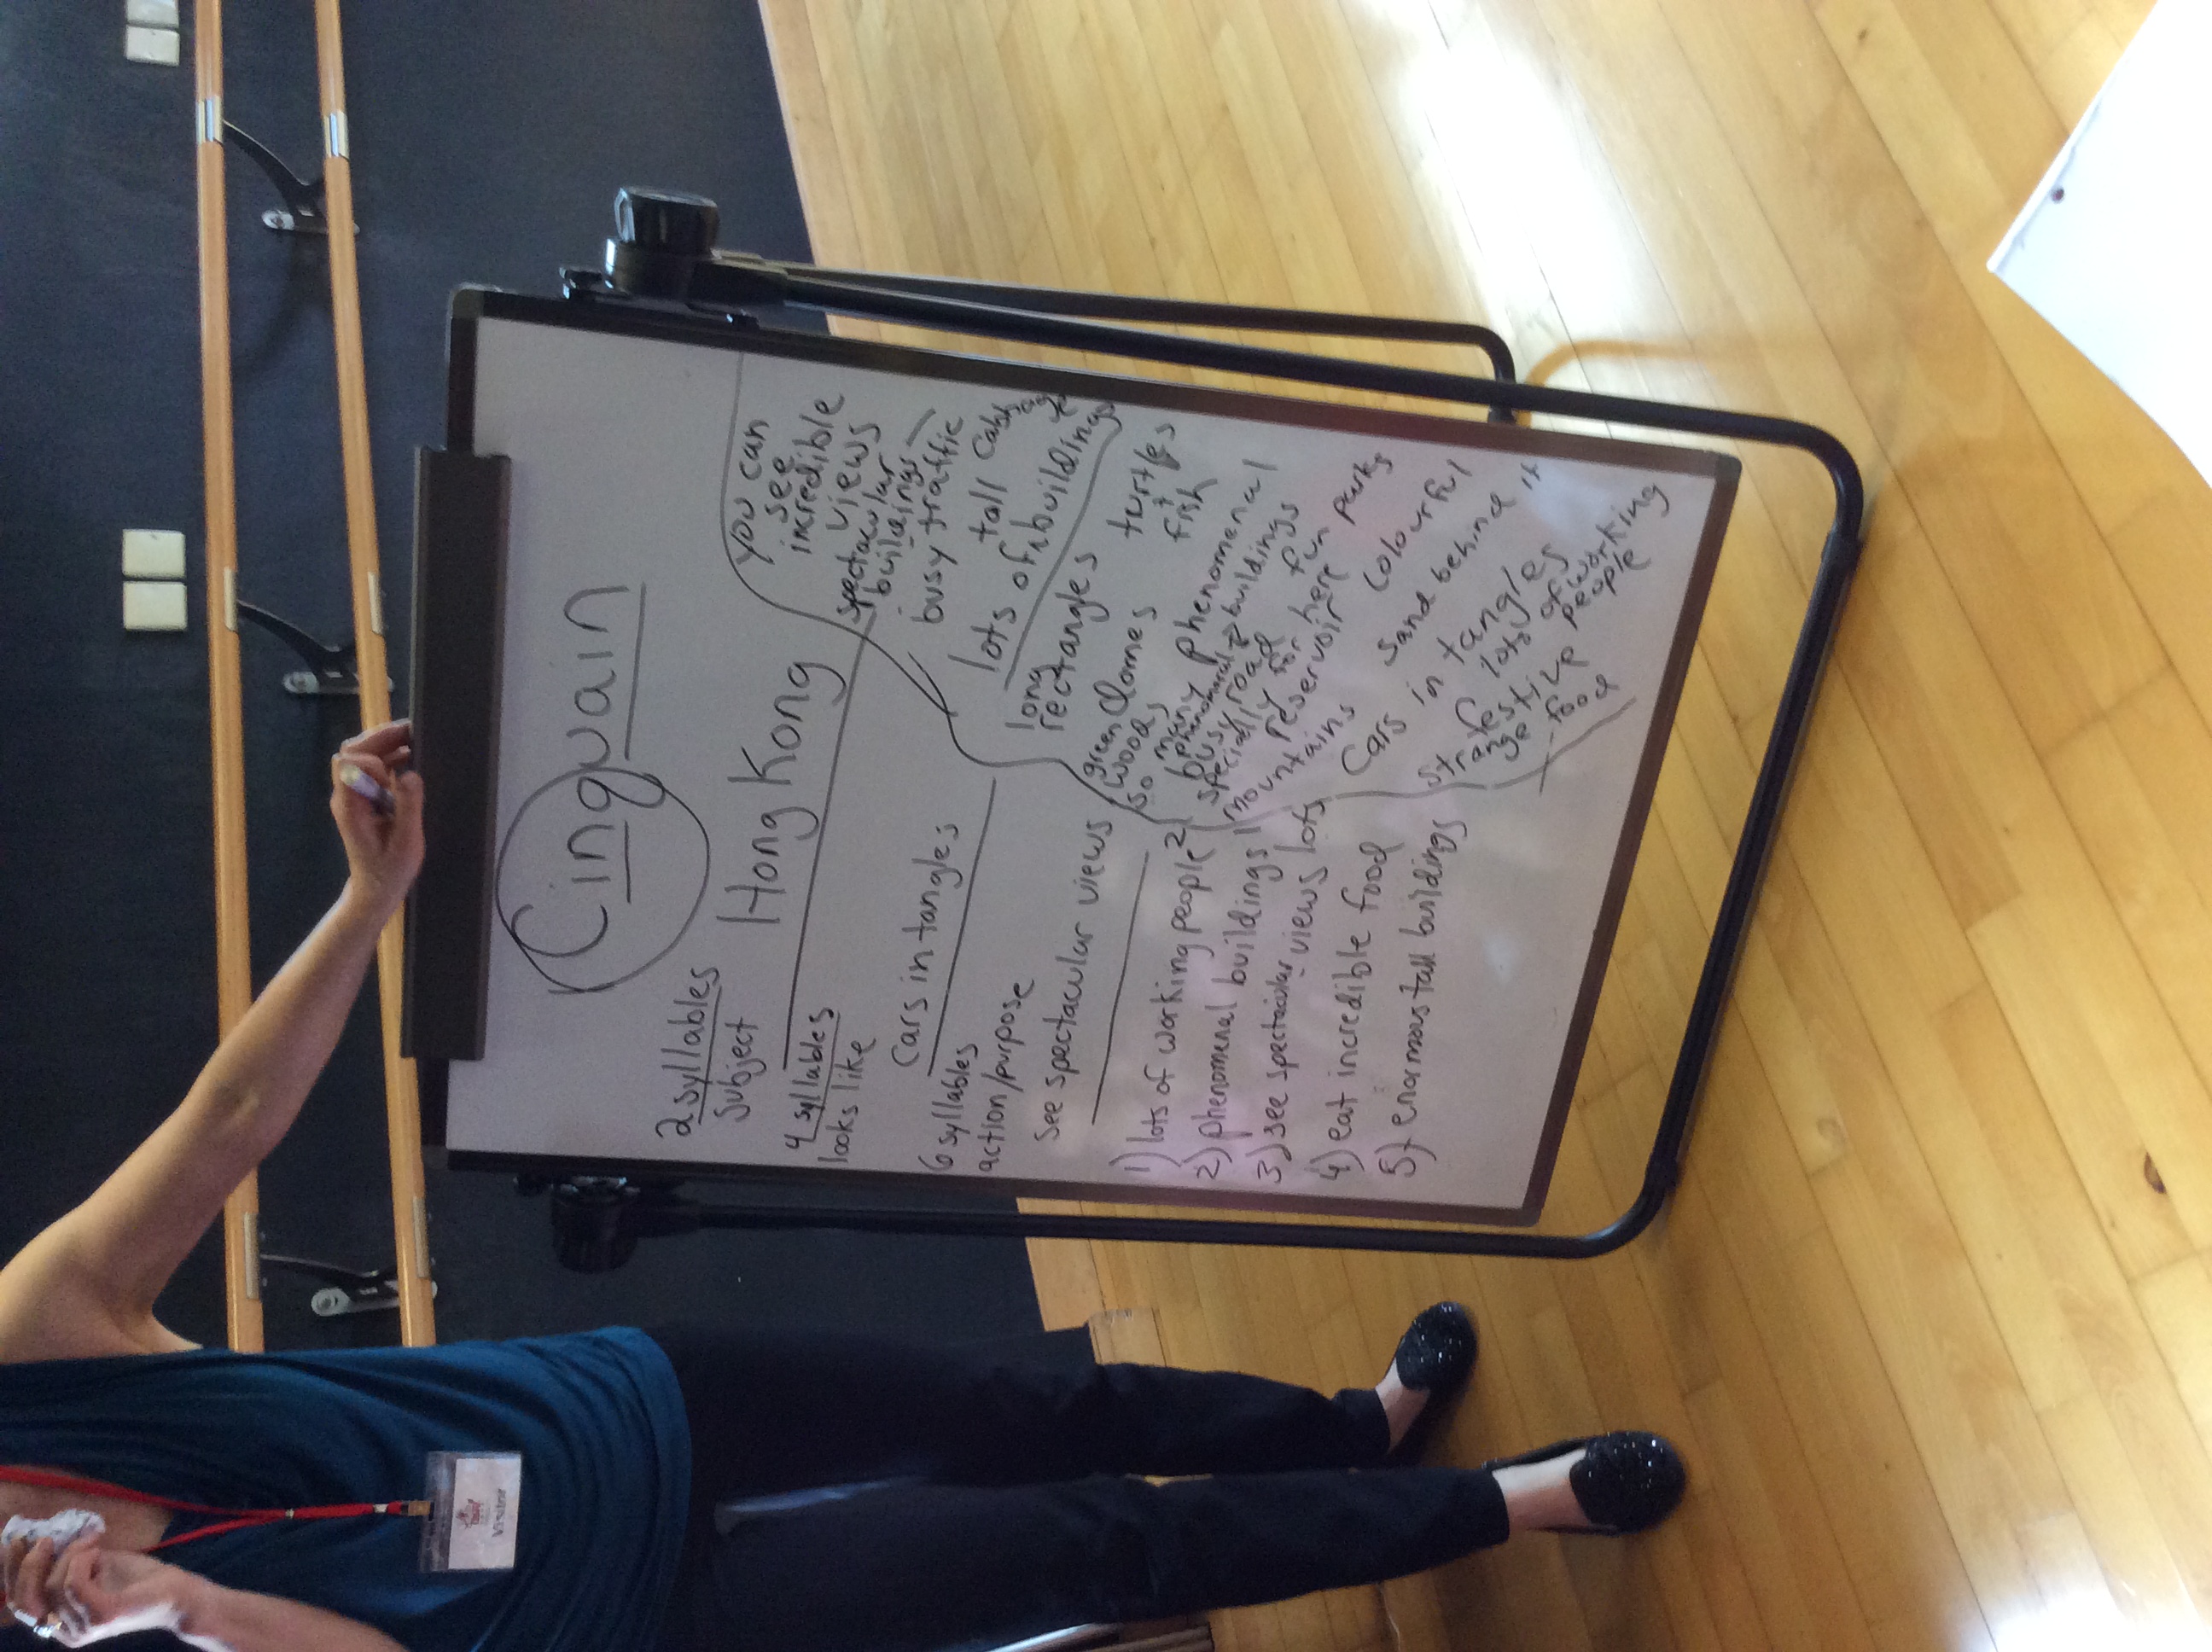 Cinquain
2 syllables
subject
Hong Kong
4 syllables
looks like
Cars in tangles
6 syllables
action/purpose
see spectacular views
1) lots of working people 2
2) phenomenal buildings 1
3) see spectacular views lots
4) eat incredible food
5) enormous tall buildings
you can
see
incredible
views
spectacular
buildings
busy traffic
tall
lots of buildings
long
rectangles
turtles
+
fish
green domes
woods
so many phenomenal
phenomenal buildings
busy road fun
specially for here parks
reservoir
mountains colourful
sand behind it
Cars in tangles
lots of working
people
festive
strange
food
Visitor